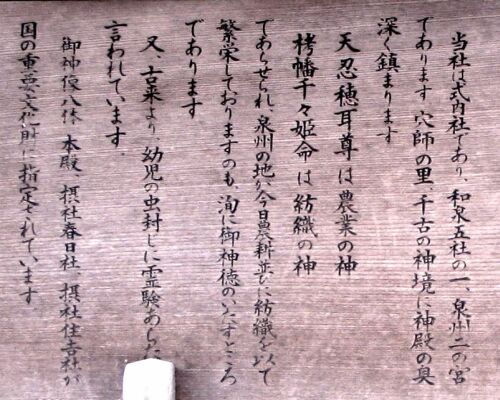 当社は式内社であり、和泉五社の一、泉州二の宮
であります 穴師の里、千古の神境に神殿の奥
深く鎮まります
天忍穂耳尊は農業の神
栲幡千々姫命は紡織の神
であらせられ、泉州の地が今日農耕並びに紡織を以て
繁栄しておりますのも、洵に御神徳のいたすところ
であります
又、古来より、幼児の虫封じに霊験あらた
言われています
御神像八体、本殿、摂社春日社、摂社住吉社が
国の重要文化財に指定されています